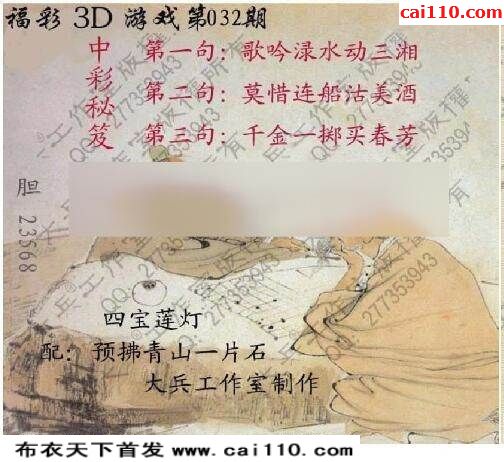 福彩 3D 游戏第032期
cai110.com
中彩秘笈
第一句：歌吟渌水动三湘
第二句：莫惜连船沽美酒
第三句：千金一掷买春芳
胆 23568
四宝莲灯
配：预拂青山一片石
大兵工作室制作
布衣天下首发 www.cai110.com